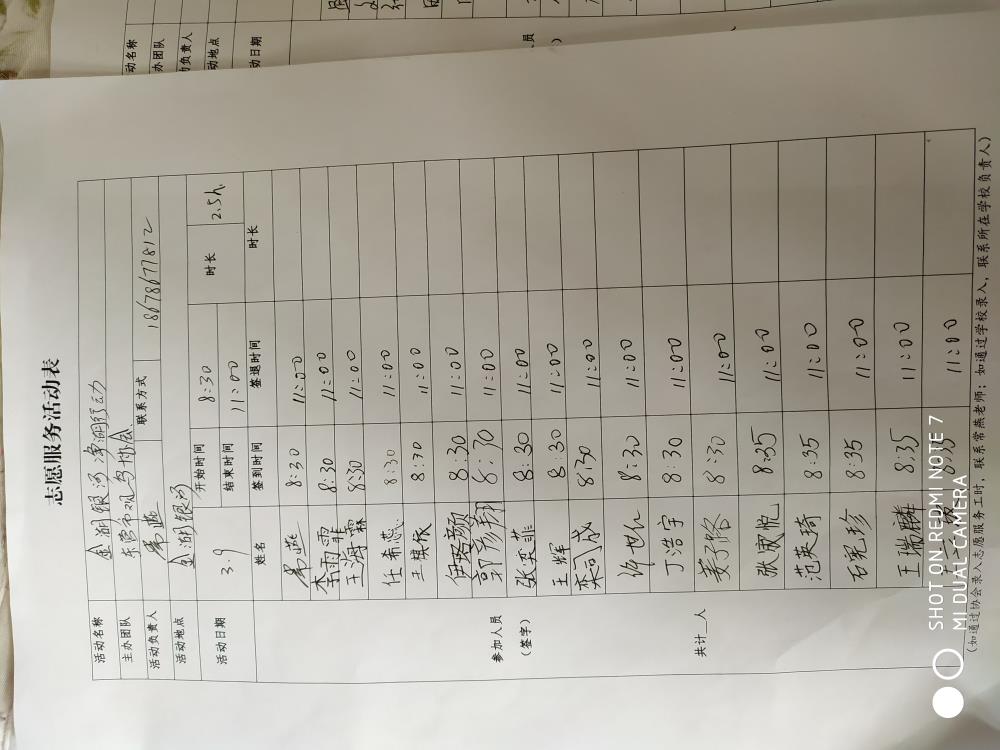 志愿服务活动表
活动名称 金湖银河净湖行动
主办团队 东营市观鸟协会
活动负责人 常燕 联系方式 18678677812
活动地点 金湖银河
活动日期 3.9 开始时间 8:30 时长 2.5h.
结束时间 11:00
姓名 签到时间 签退时间 时长
参加人员
(签字)
共计__人
常燕 8:30 11:00
李雨霏 8:30 11:00
王海霖 8:30 11:00
任希恋 8:30 11:00
王棋 8:30 11:00
伊路颜 8:30 11:00
郭彦翔 8:30 11:00
张奕菲 8:30 11:00
王辉 8:30 11:00
8:30 11:00
许世 8:30 11:00
丁浩宇 8:30 11:00
姜子路 8:30 11:00
张宸悦 8:35 11:00
范英琦 8:35 11:00
石宪珍 8:35 11:00
王瑞麟 8:35 11:00
11:00
(如通过协会录入志愿服务工时,联系常燕老师;如通过学校录入,联系所在学校负责人)
动名称
办团队
动负责人
动地点
动日期
SHOT ON REDMI NOTE 7
MI DUAL CAMERA